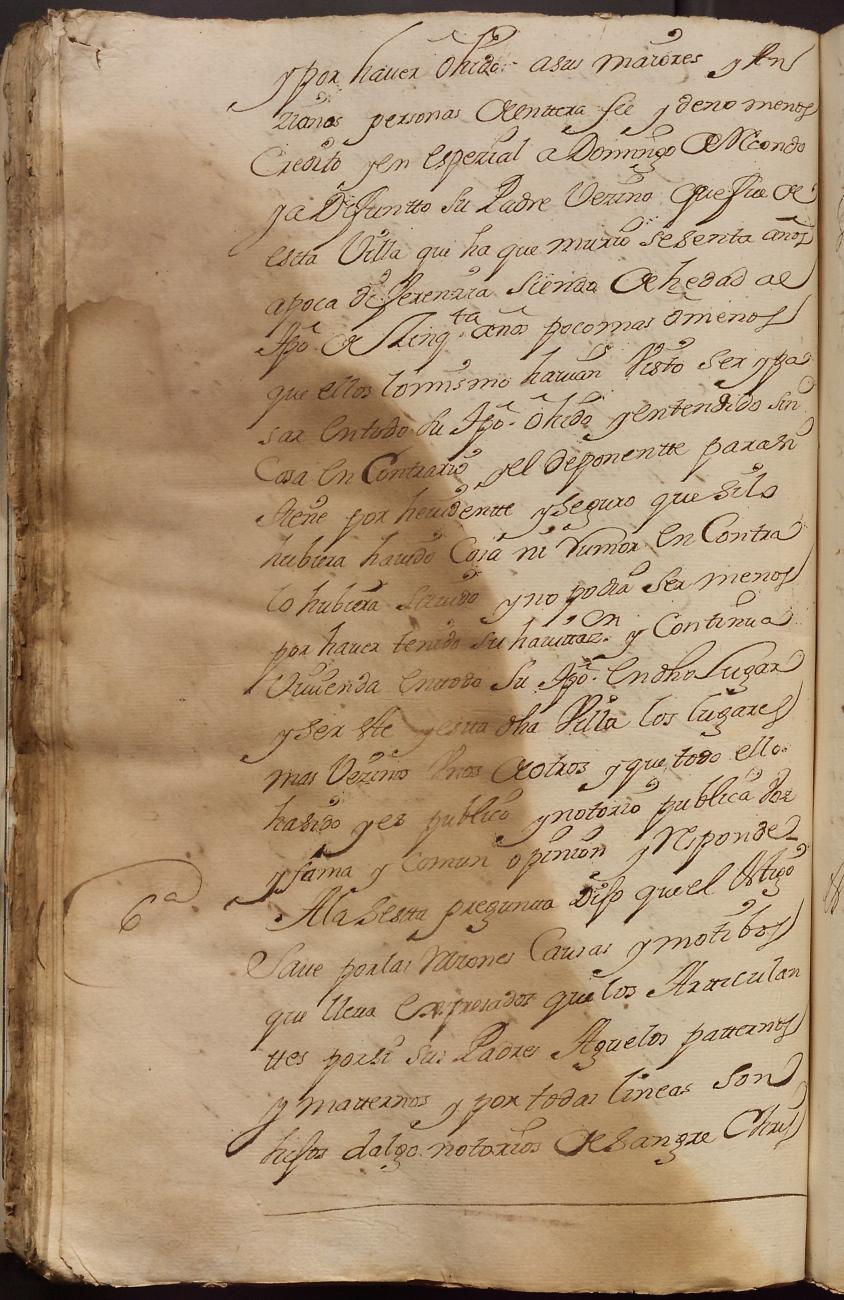 y por hauer ôhido a sus maiores y An
zianos personas de enttera fee y de no menos
Credito y en espezial a Domingo de
ya Difuntto su Padre Vezino que fue de
estta Villa que ha que murio sesenta años
a poca diferenzia siendo de hedad al
tpô. de Zinq.ta años poco mas ô menos
que ellos lo mismo hauian Visto ser y pa
sar en todo su tpô. ôhido y entendido sin
Cosa en Contrario y el deponentte para si
tiene por heuidentte y seguro que si lo
hubiera hauido Cosa ni Rumor en Contra
lo hubiera sauido y no podia ser menos
por hauer tenido su hauittaz.on y Continua
Viuienda en todo su tpô. en dho Lugar
y ser estte y estta dha Villa los lugares
mas Vezinos Unos de otros y que todo ello
ha sido y es publico y nottorio publica voz
y fama y comun opinion y Responde
6a
A la sestta pregunta Dijo que el testigo
Saue por las razones Causas y motibos
que lleua expresados que los Articulan
ttes por si sus Padres Aguelos patternos
y matternos y por todas lineas son
hijos dalgo notorios de Sangre Chris